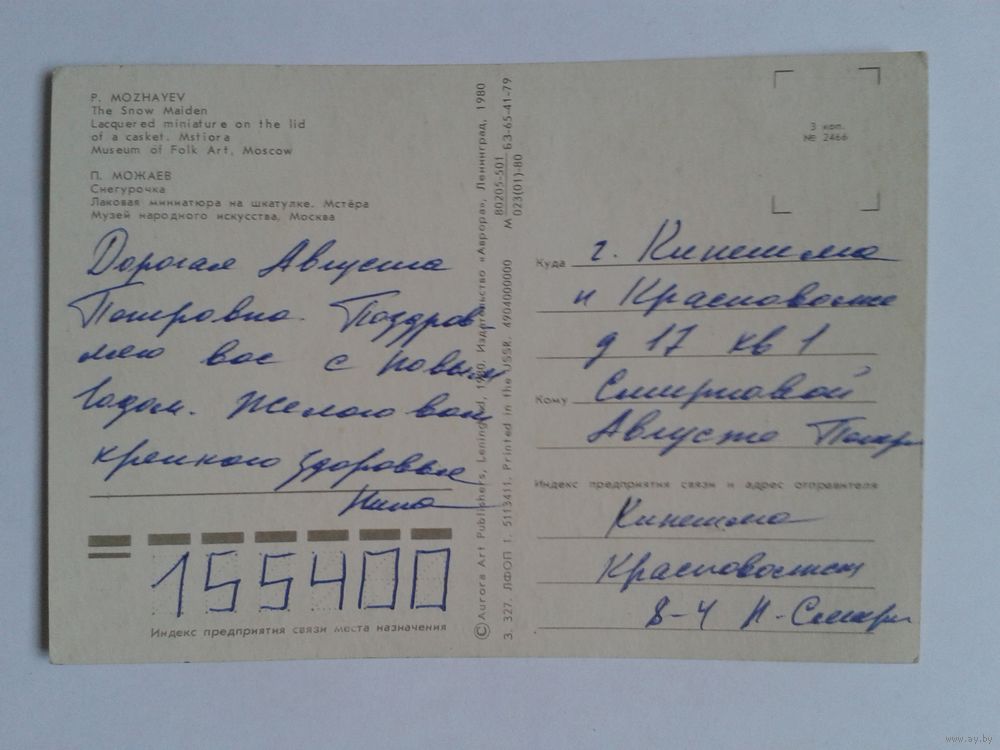 P. MOZHAYEV
The Snow Maiden
Lacquered miniature on the lid
of a casket. Mstiora
Museum of Folk Art, Moscow
П. МОЖАЕВ
Снегурочка
Лаковая миниатюра на шкатулке. Мстёра
Музей народного искусства, Москва
Дорогая Августа
Петровна. Поздров
ляю вас с новым
годом. Желаю вам
крепкого здоровья
Нина
155400
Индекс предприятия связи места назначения
© Aurora Art Publishers, Leningrad, 1980. Издательство «Аврора», Ленинград, 1980
З. 327. ЛФОП 1. 5113411. Printed in the USSR. 4904000000
М 80205-501
023(01)-80 БЗ-65-41-79
3 коп.
№ 2466
Куда г. Кинешма
д 17 кв 1
Кому Смирновой
Августе
Индекс предприятия связи и адрес отправителя
Кинешма
8-4 Н-
www.ay.by